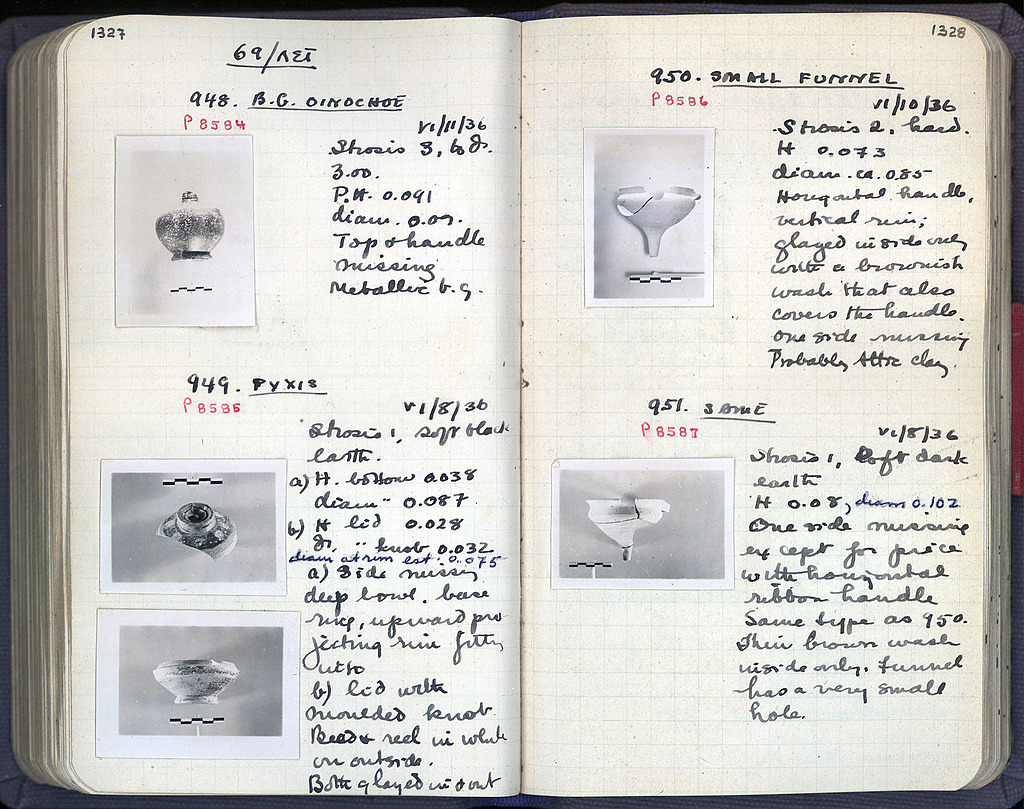 1327
69/ΛΣΤ
948. B.G. OINOCHOE
P 8584
VI/11/36
Strosis 3, to dr.
3.00.
P.H. 0.091
diam. 0.09.
Top & handle
missing
Metallic b.g.
949. PYXIS
P 8585
VI/8/36
Strosis 1, soft black
earth.
a) H. bottom 0.038
diam " 0.087
b) H lid 0.028
" knob 0.032
diam at rim est. 0.075
a) Side missing
deep bowl. base
ring, upward pro
jecting rim fitting
into
b) lid with
moulded knob.
Bead & reel in white
on outside.
Both glazed in & out
1328
950. SMALL FUNNEL
P 8586
VI/10/36
Strosis 2, hard.
H 0.073
diam. ca. 0.85
Horizontal handle,
vertical rim;
glazed inside only
with a brownish
wash that also
covers the handle.
One side missing
Probably Attic clay.
951. SAME
P 8587
VI/8/36
Strosis 1, soft dark
earth
H 0.08, diam 0.102
One side missing
except for piece
with horizontal
ribbon handle
Same type as 950.
Thin brown wash
inside only. funnel
has a very small
hole.